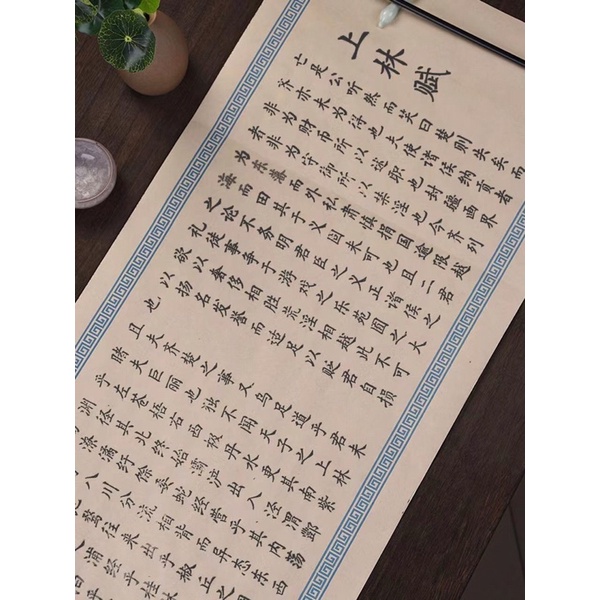 上林赋
亡是公听然而笑曰楚则失矣而
齐亦未为得也夫使诸侯纳贡者
非为财币所以述职也封疆画界
者非为守御所以禁淫也今齐列
为东藩而外私肃慎捐国逾限越
海而田其于义固未可也且二君
之论不务明君臣之义正诸侯之
礼徒事争于游戏之乐苑囿之大
欲以奢侈相胜荒淫相越此不可
以扬名发誉而适足以贬君自损
也
且夫齐楚之事又乌足道乎君未
睹夫巨丽也独不闻天子之上林
乎左苍梧右西极丹水更其南紫
渊径其北终始灞浐出入泾渭酆
潦潏纡馀委蛇经营乎其内荡
八川分流相背而异态东西
骛往来出乎椒丘之
浦经乎桂林